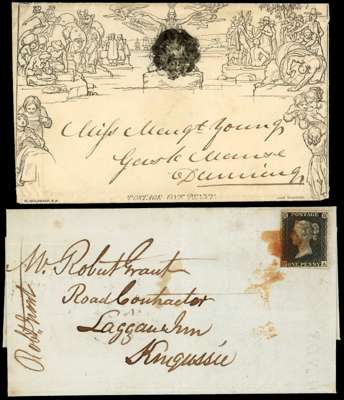 Miss Margt Young,
Gask Manse
Dunning,
POSTAGE ONE PENNY
POSTAGE
ONE PENNY
Mr. Robert Grant
Road Contractor
Laggan Inn
Kingussie
Robt Grant